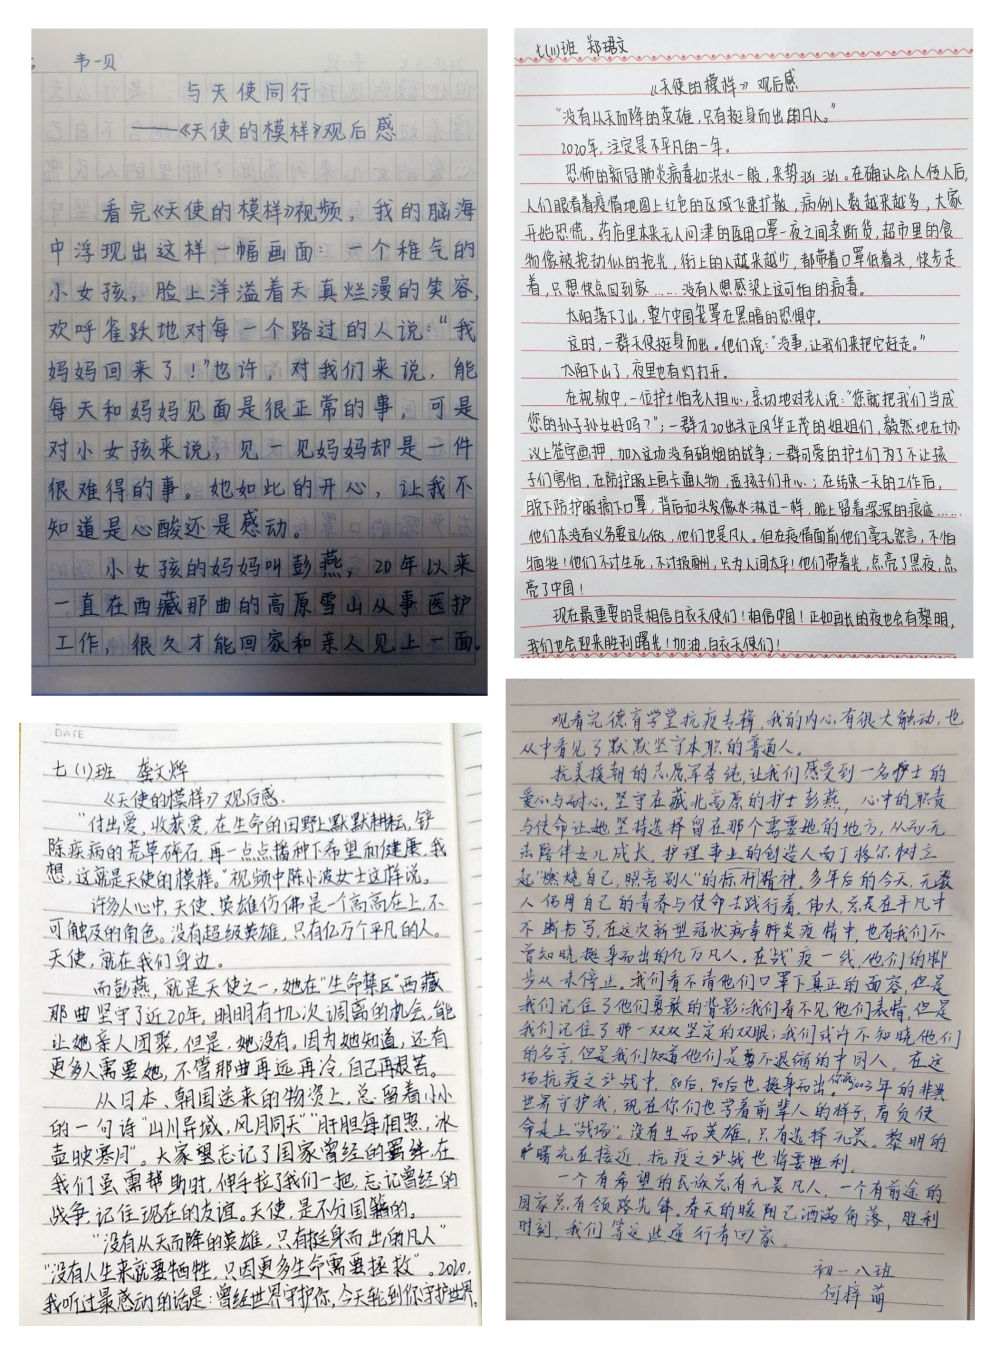 韦一贝
与天使同行
——《天使的模样》观后感
看完《天使的模样》视频，我的脑海
中浮现出这样一幅画面：一个稚气的
小女孩，脸上洋溢着天真烂漫的笑容，
欢呼雀跃地对每一个路过的人说：“我
妈妈回来了！”也许，对我们来说，能
每天和妈妈见面是很正常的事，可是
对小女孩来说，见一见妈妈却是一件
很难得的事。她如此的开心，让我不
知道是心酸还是感动。
小女孩的妈妈叫彭燕，20年以来
一直在西藏那曲的高原雪山从事医护
工作，很久才能回家和亲人见上一面。
七(11)班 郑珺文
《天使的模样》观后感
“没有从天而降的英雄，只有挺身而出的凡人。”
2020年，注定是不平凡的一年。
恐怖的新冠肺炎病毒如洪水一般，来势汹汹。在确认会人传人后，
人们眼看着疫情地图上红色的区域飞速扩散，病例人数越来越多，大家
开始恐慌。药店里本来无人问津的医用口罩一夜之间卖断货，超市里的食
物像被抢劫似的抢光，街上的人越来越少，都带着口罩低着头，快步走
着，只想快点回到家……没有人想感染上这可怕的病毒。
太阳落下了山，整个中国笼罩在黑暗的恐惧中。
这时，一群天使挺身而出。他们说：“没事，让我们来把它赶走。”
太阳下山了，夜里也有灯打开。
在视频中，一位护士怕老人担心，亲切地对老人说：“您就把我们当成
您的孙子孙女好吗？”；一群才20出头正风华正茂的姐姐们，毅然地在协
议上签字画押，加入这场没有硝烟的战争；一群可爱的护士们为了不让孩
子们害怕，在防护服上画卡通人物，逗孩子们开心；在结束一天的工作后，
脱下防护服摘下口罩，背后和头发像水淋过一样，脸上留着深深的痕迹……
他们本没有义务要这么做，他们也是凡人。但在疫情面前他们毫无怨言，不怕
牺牲！他们不计生死，不讨报酬，只为人间太平！他们带着光，点亮了黑夜，点
亮了中国！
现在最重要的是相信白衣天使们！相信中国！正如再长的夜也会有黎明，
我们也会迎来胜利曙光！加油，白衣天使们！
DATE
七(1)班 龚文烨
《天使的模样》观后感
“付出爱，收获爱，在生命的田野上默默耕耘，铲
除疾病的荒草碎石，再一点点播种下希望和健康，我
想，这就是天使的模样。”视频中陈小波女士这样说。
许多人心中，天使、英雄仿佛是一个高高在上，不
可触及的角色。没有超级英雄，只有亿万个平凡的人。
天使，就在我们身边。
而彭燕，就是天使之一，她在“生命禁区”西藏
那曲坚守了近20年。明明有十几次调离的机会，能
让她亲人团聚，但是，她没有，因为她知道，还有
更多人需要她，不管那曲再远再冷，自己再艰苦。
从日本、朝国送来的物资上，总留着小小
的一句诗“山川异域，风月同天”“肝胆每相照，冰
壶映寒月”。大家望忘记了国家曾经的羁绊，在
我们虽需帮助时，伸手拉了我们一把，忘记曾经的
战争，记住现在的友谊。天使，是不分国籍的。
“没有从天而降的英雄，只有挺身而出的凡人”
“没有人生来就要牺牲，只因更多生命需要拯救”。2020，
我听过最感动的话是：曾经世界守护你，今天轮到你守护世界。
观看完德育学堂抗疫专辑，我的内心有很大触动，也
从中看见了默默坚守本职的普通人。
抗美援朝的志愿军李纯，让我们感受到一名护士的
爱心与耐心。坚守在藏北高原的护士彭燕，心中的职责
与使命让她坚持选择留在那个需要她的地方，从而无
法陪伴女儿成长，护理事业的创造人南丁格尔树立
起“燃烧自己，照亮别人”的标杆精神。多年后的今天，无数
人仍用自己的青春与使命去践行着。伟大，总是在平凡中
不断书写，在这次新型冠状病毒肺炎疫情中，也有我们不
曾知晓挺身而出的亿万凡人。在战“疫”一线，他们的脚
步从未停止。我们看不清他们口罩下真正的面容，但是
我们记住了他们勇敢的背影；我们看不见他们表情，但是
我们记住了那一双双坚定的双眼；我们或许不知晓他们
的名字，但是我们知道他们是勇不退缩的中国人。在这
场抗疫之战中，80后，90后也挺身而出，你说2003年的非典
世界守护我，现在你们也学着前辈人的样子，肩负使
命走上“战场”。没有生而英雄，只有选择无畏。黎明的
曙光在接近，抗疫之战也将要胜利。
一个有希望的民族总有无畏凡人，一个有前途的
国家总有领路先锋。春天的暖阳已洒满角落，胜利
时刻，我们等这些逆行者回家。
初一八班
何梓萌